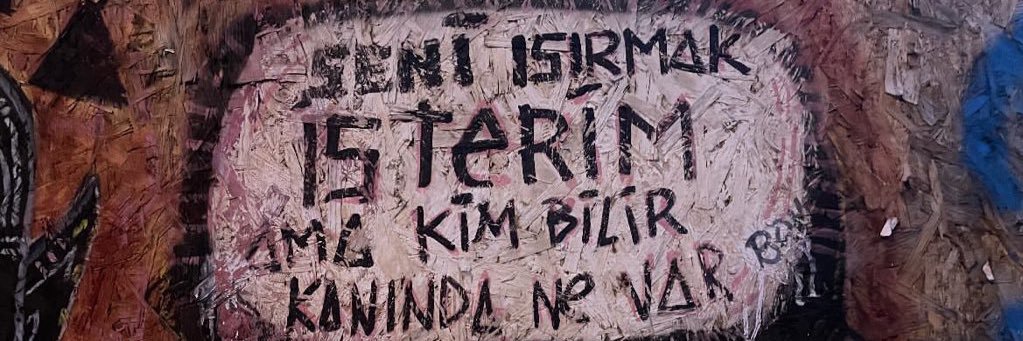 SENİ ISIRMAK
İSTERİM
AMA KİM BİLİR
KANINDA Ne VAR